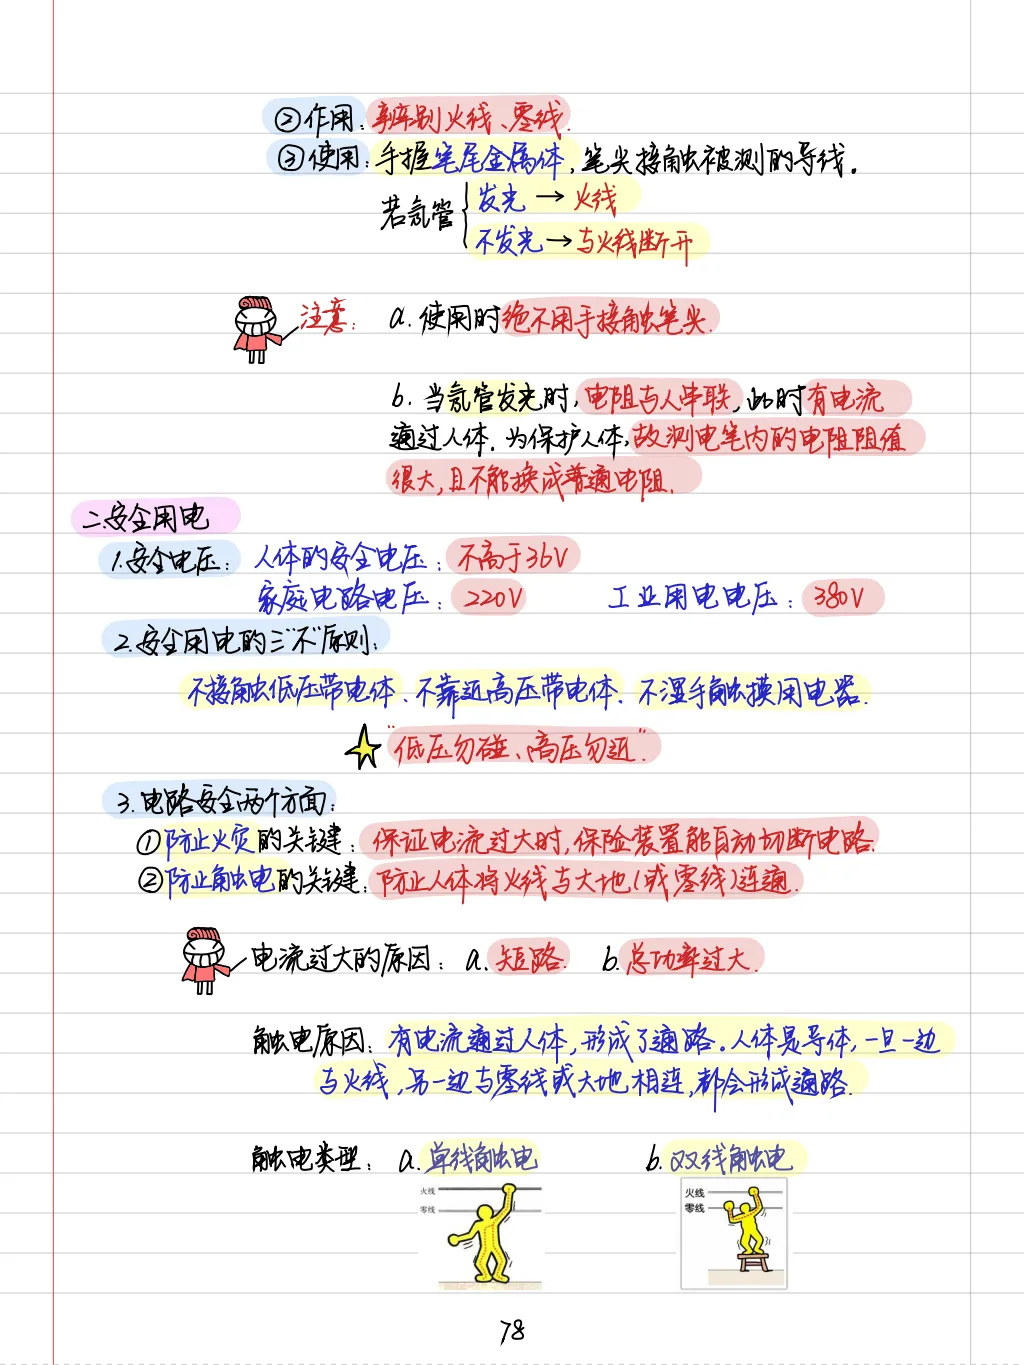 ②作用：辨别火线、零线.
③使用：手握笔尾金属体，笔尖接触被测的导线。
若氖管
发光→火线
不发光→与火线断开
注意：a.使用时绝不用手接触笔尖.
b.当氖管发光时，电阻与人串联，此时有电流
通过人体.为保护人体，故测电笔内的电阻阻值
很大，且不能换成普通电阻.
二.安全用电
1.安全电压：人体的安全电压：不高于36V
家庭电路电压：220V 工业用电电压：380V
2.安全用电的三"不"原则：
不接触低压带电体、不靠近高压带电体、不湿手触摸用电器.
"低压勿碰、高压勿近"
3.电路安全两个方面：
①防止火灾的关键：保证电流过大时，保险装置能自动切断电路.
②防止触电的关键：防止人体将火线与大地(或零线)连通.
电流过大的原因：a.短路. b.总功率过大.
触电原因：有电流通过人体，形成了通路。人体是导体，一旦一边
与火线，另一边与零线或大地相连，都会形成通路.
触电类型：a.单线触电 b.双线触电
火线 火线
零线 零线
78